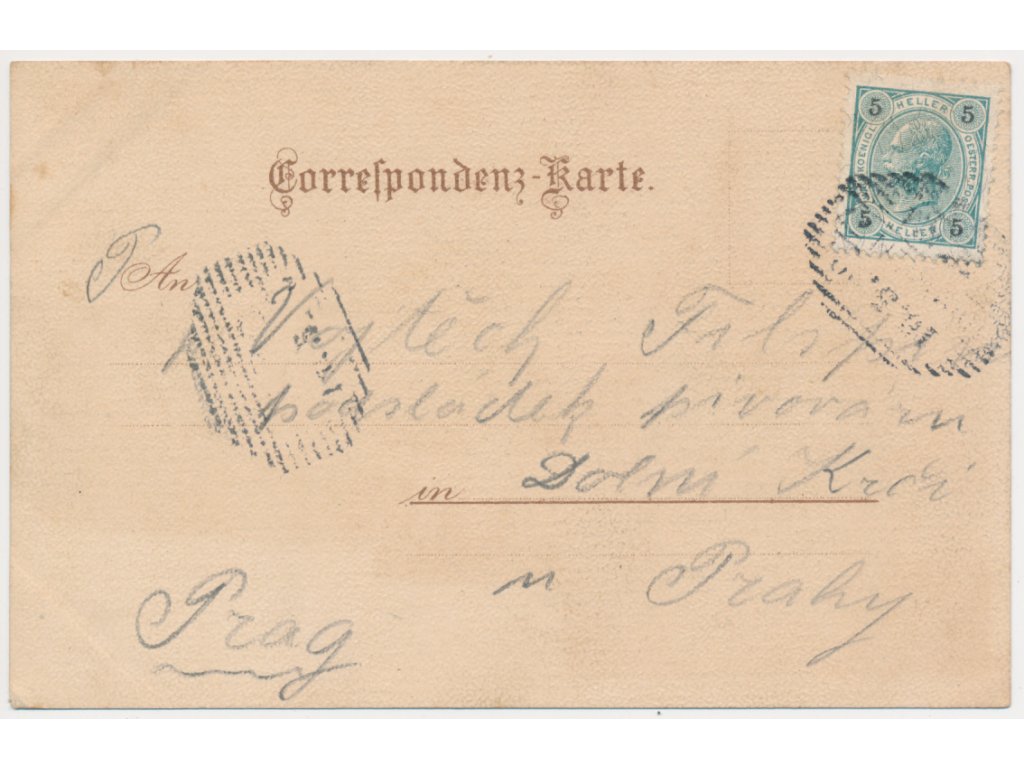 5 HELLER 5
KOENIGL. OESTERR. POST
5 HELLER 5
Correſpondenz-Karte.
An
Vojtěch
podsládek pivovaru
in Dolní Krči
u Prahy
Prag